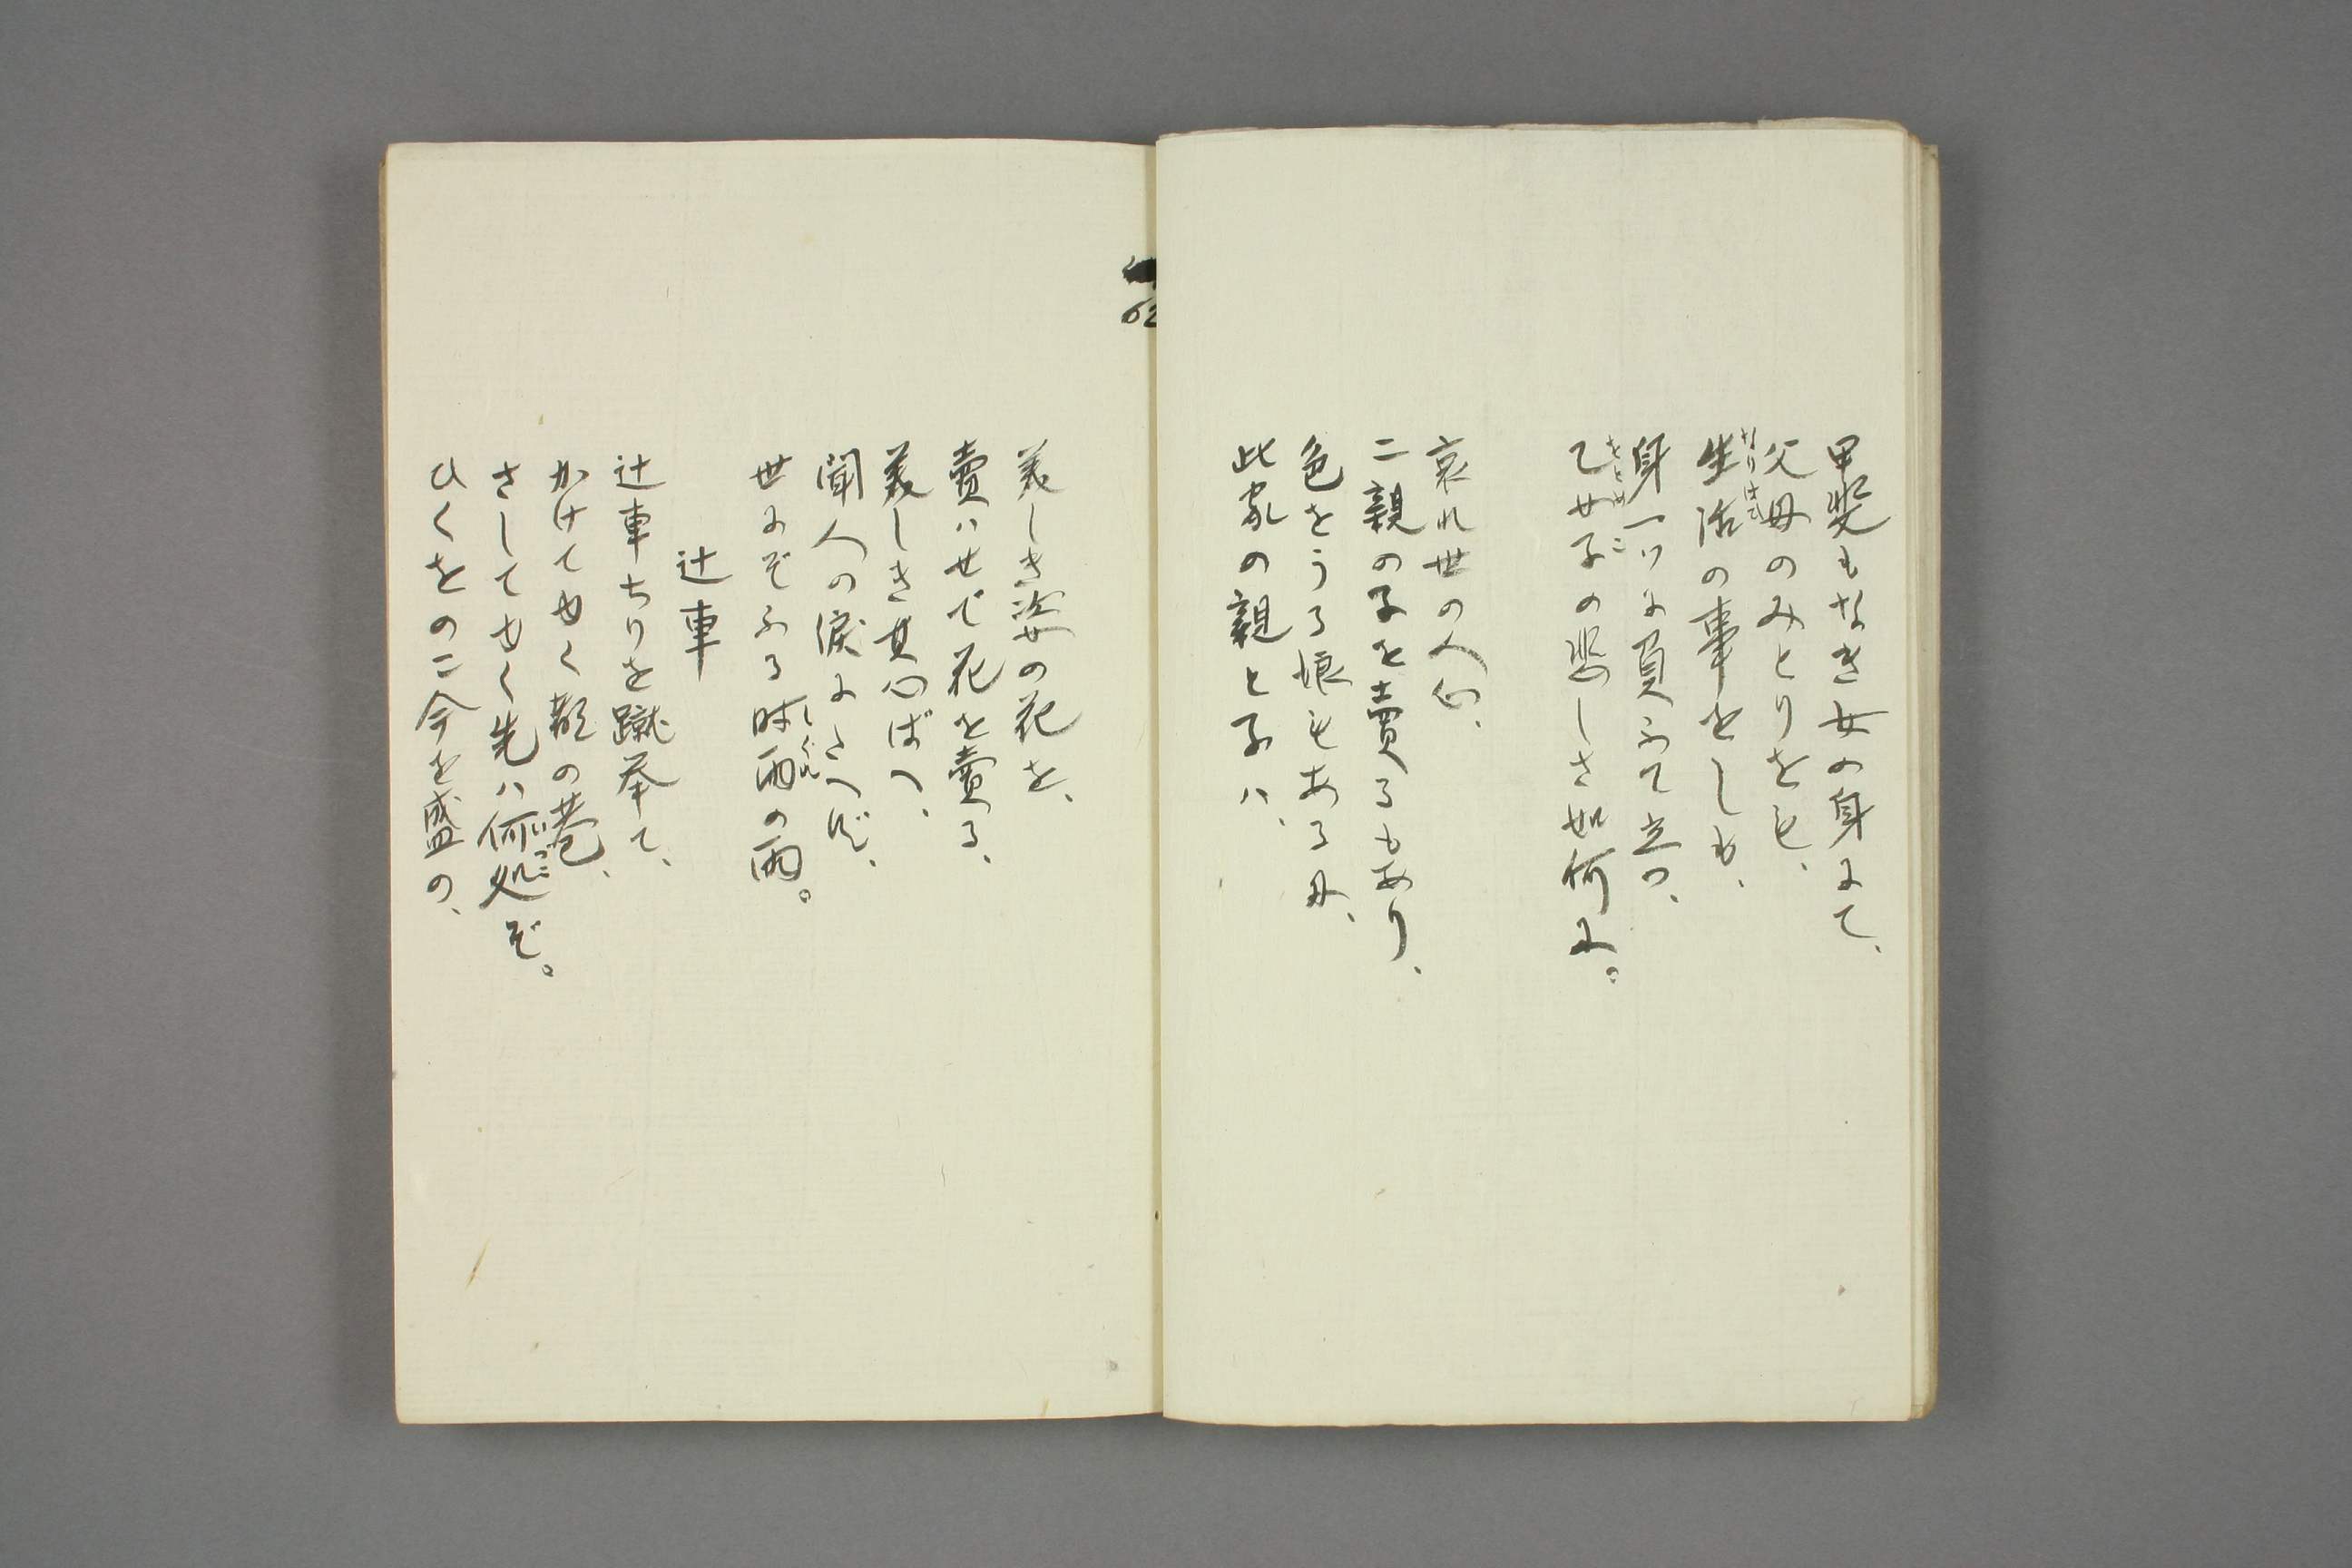 甲斐もなき女の身にて、
父母のみとりをも、
生活の事をしも、
なりはひ
身一ツに負ふて立つ、
乙女子の悲しさ如何に。
をとめご
哀れ世の人心、
二親の子を売るもあり、
色をうる娘もある母、
此家の親と子ハ、
62
美しき姿の花を、
売ハせで花を売る、
美しき其心ばへ、
聞人の涙にたへで、
世にぞふる時雨の雨。
しぐれ
辻車
辻車ちりを蹴挙て、
かけてゆく都の巷、
さしてゆく先ハ何処ぞ。
いづこ
ひくをのこ今を盛の、